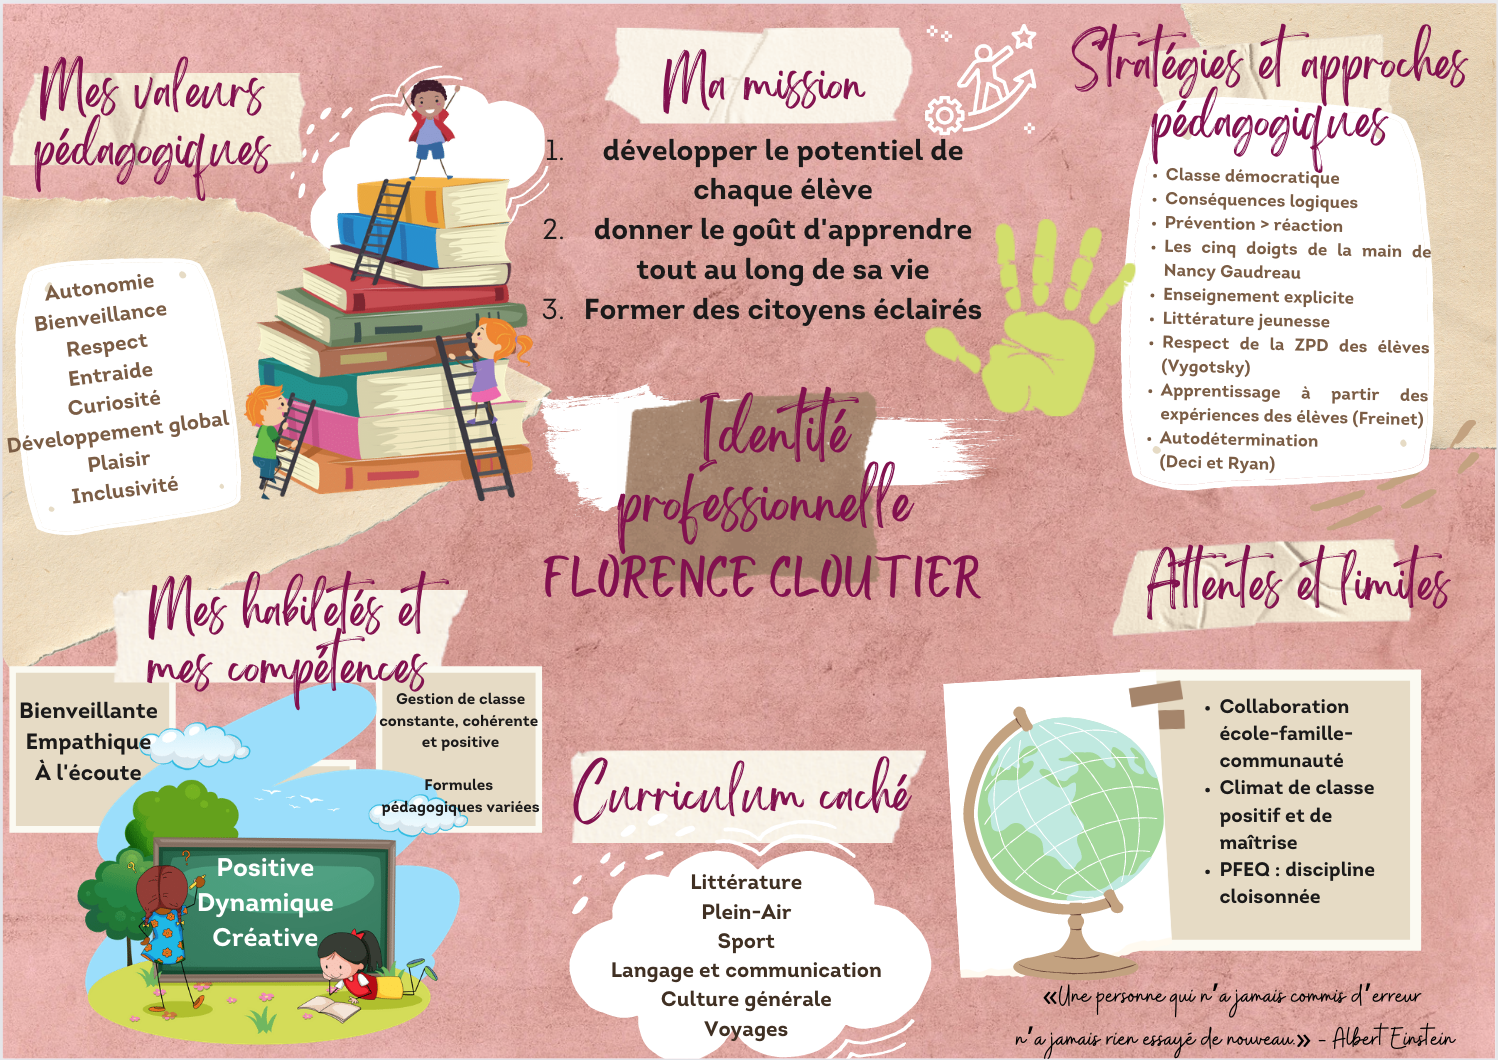 Mes valeurs
pédagogiques
Autonomie
Bienveillance
Respect
Entraide
Curiosité
Développement global
Plaisir
Inclusivité
Ma mission
1. développer le potentiel de
chaque élève
2. donner le goût d'apprendre
tout au long de sa vie
3. Former des citoyens éclairés
Stratégies et approches
pédagogiques
• Classe démocratique
• Conséquences logiques
• Prévention > réaction
• Les cinq doigts de la main de
Nancy Gaudreau
• Enseignement explicite
• Littérature jeunesse
• Respect de la ZPD des élèves
(Vygotsky)
• Apprentissage à partir des
expériences des élèves (Freinet)
• Autodétermination
(Deci et Ryan)
Identité
professionnelle
FLORENCE CLOUTIER
Mes habiletés et
mes compétences
Bienveillante
Empathique
À l'écoute
Gestion de classe
constante, cohérente
et positive
Formules
pédagogiques variées
Positive
Dynamique
Créative
Curriculum caché
Littérature
Plein-Air
Sport
Langage et communication
Culture générale
Voyages
Attentes et limites
• Collaboration
école-famille-
communauté
• Climat de classe
positif et de
maîtrise
• PFEQ : discipline
cloisonnée
«Une personne qui n'a jamais commis d'erreur
n'a jamais rien essayé de nouveau.» - Albert Einstein